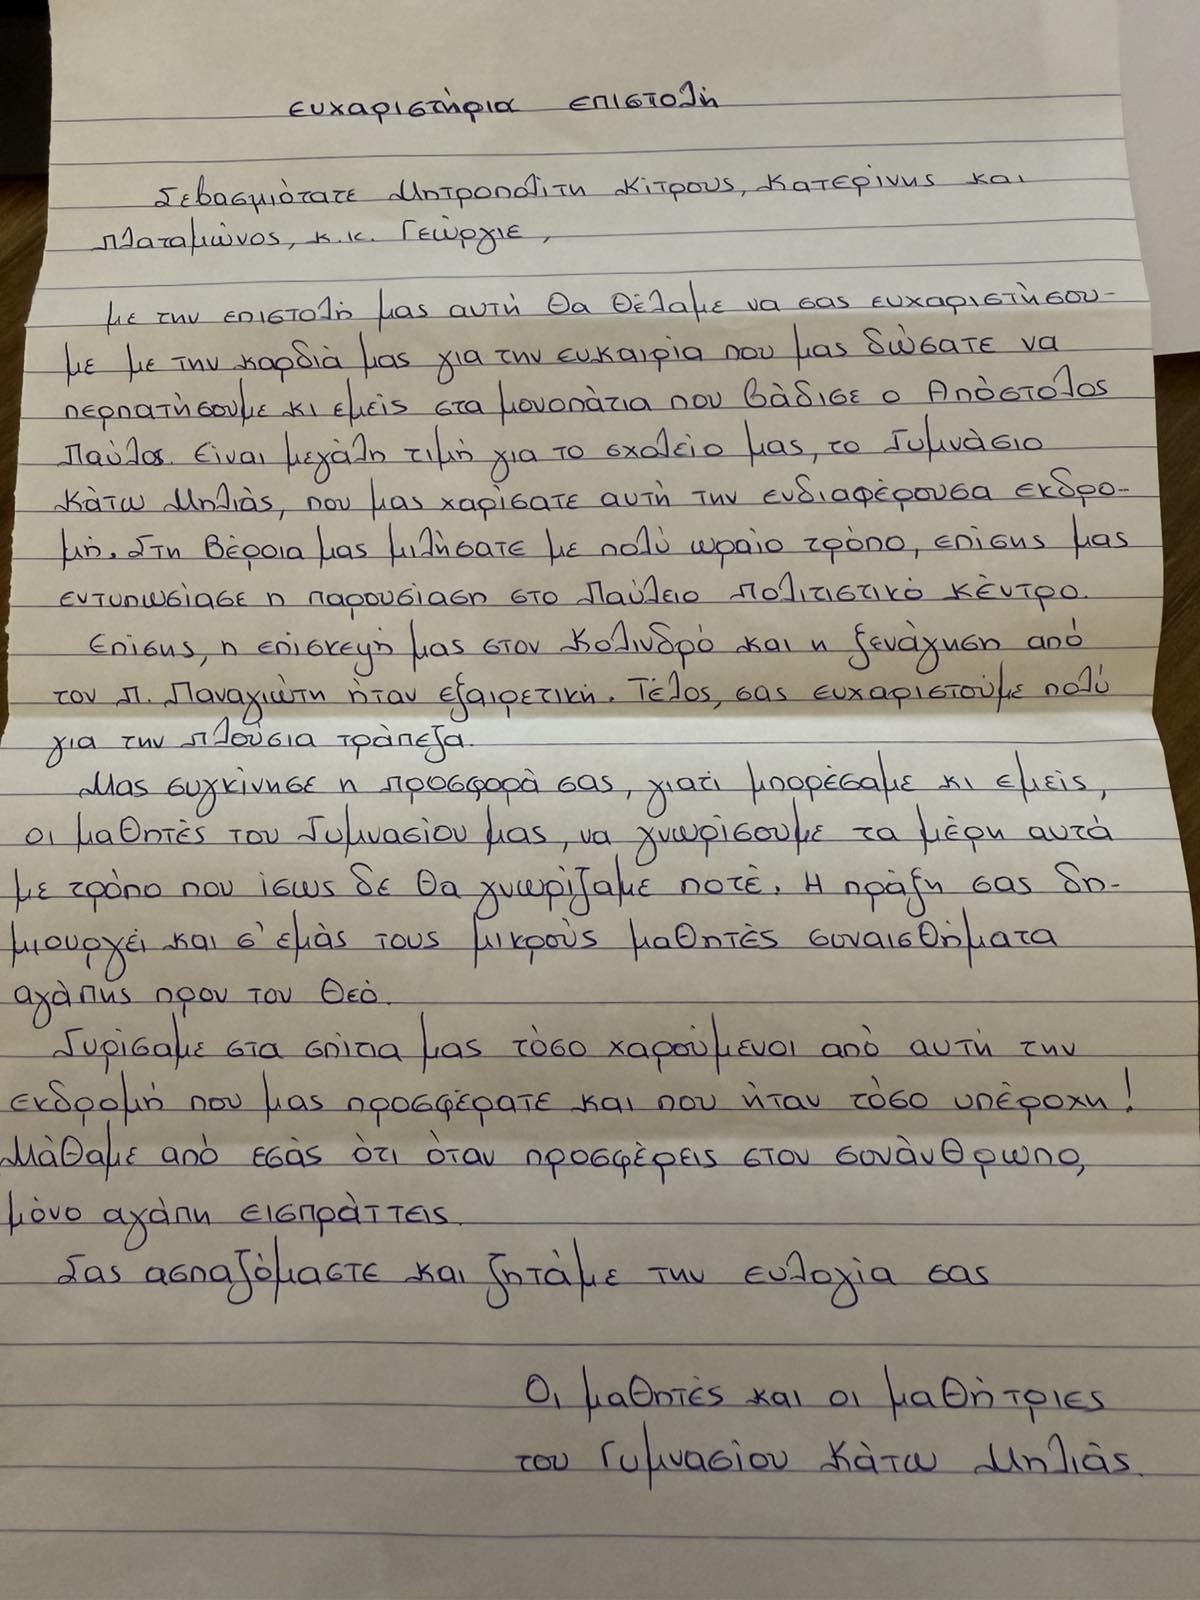 ευχαριστήρια επιστολή
Σεβασμιότατε Μητροπολίτη Κίτρους, Κατερίνης και
Πλαταμώνος, κ.κ. Γεώργιε,
με την επιστολή μας αυτή θα θέλαμε να σας ευχαριστήσου-
με με την καρδιά μας για την ευκαιρία που μας δώσατε να
περπατήσουμε κι εμείς στα μονοπάτια που βάδισε ο Απόστολος
Παύλος. Είναι μεγάλη τιμή για το σχολείο μας, το Γυμνάσιο
Κάτω Μηλιάς, που μας χαρίσατε αυτή την ενδιαφέρουσα εκδρο-
μή. Στη Βέροια μας μιλήσατε με πολύ ωραίο τρόπο, επίσης μας
εντυπωσίασε η παρουσίαση στο Παύλειο Πολιτιστικό Κέντρο.
Επίσης, η επίσκεψή μας στον Κολινδρό και η ξενάγηση από
τον π. Παναγιώτη ήταν εξαιρετική. Τέλος, σας ευχαριστούμε πολύ
για την πλούσια τράπεζα.
Μας συγκίνησε η προσφορά σας, γιατί μπορέσαμε κι εμείς,
οι μαθητές του Γυμνασίου μας, να γνωρίσουμε τα μέρη αυτά
με τρόπο που ίσως δε θα γνωρίζαμε ποτέ. Η πράξη σας δη-
μιουργεί και σ' εμάς τους μικρούς μαθητές συναισθήματα
αγάπης πρου τον Θεό.
Γυρίσαμε στα σπίτια μας τόσο χαρούμενοι από αυτή την
εκδρομή που μας προσφέρατε και που ήταν τόσο υπέροχη!
Μάθαμε από εσάς ότι όταν προσφέρεις στον συνάνθρωπο,
μόνο αγάπη εισπράττεις.
Σας ασπαζόμαστε και ζητάμε την ευλογία σας
Οι μαθητές και οι μαθήτριες
του Γυμνασίου Κάτω Μηλιάς.